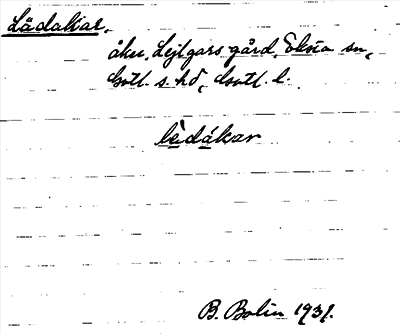 Lådakar,
åker, Lejlgars gård, Eksta sn,
Gotl. s. hd, Gotl. l.
lèdákar
B. Bolin 1931.